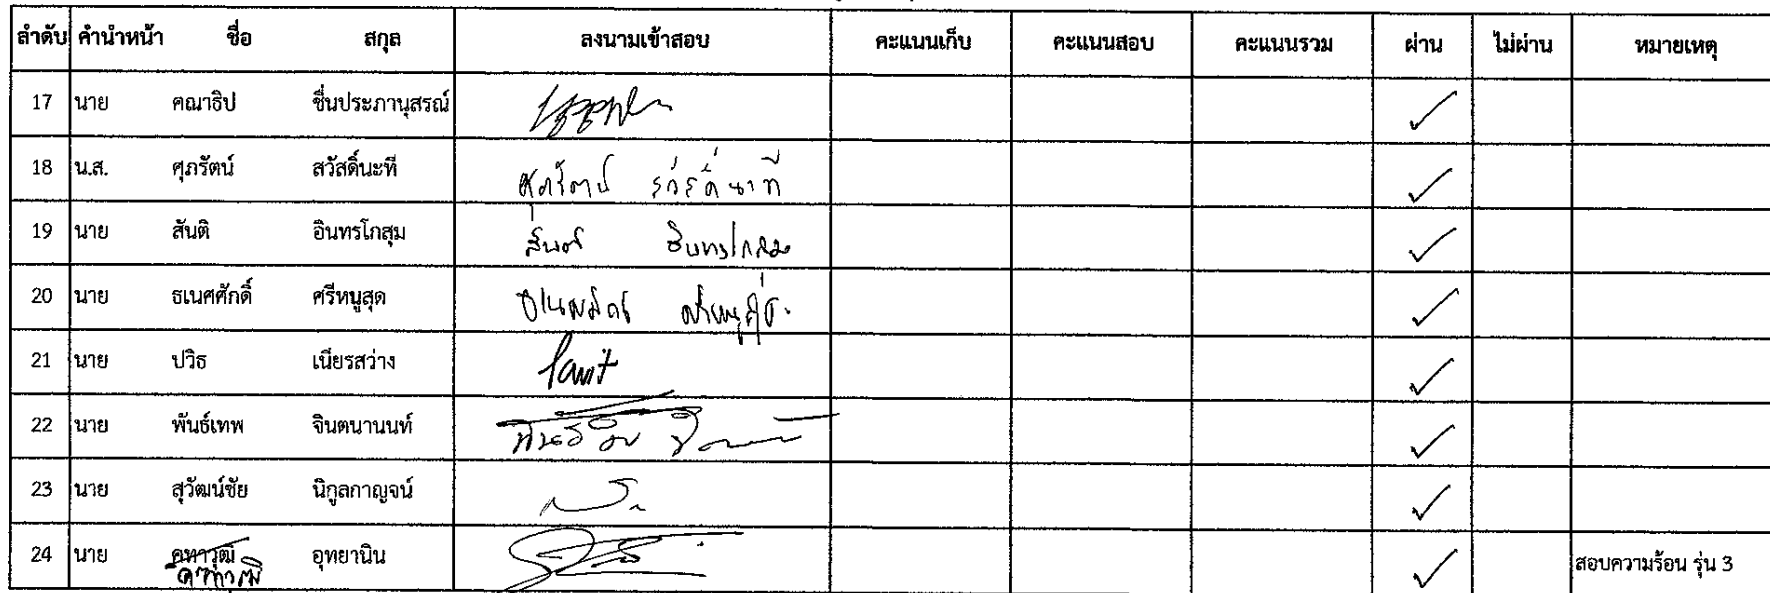 ลำดับ คำนำหน้า ชื่อ สกุล ลงนามเข้าสอบ คะแนนเก็บ คะแนนสอบ คะแนนรวม ผ่าน ไม่ผ่าน หมายเหตุ
17 นาย คณาธิป ชื่นประภานุสรณ์ ✓
18 น.ส. ศุภรัตน์ สวัสดิ์นะที ศุภรัตน์ สวัสดิ์นาที ✓
19 นาย สันติ อินทรโกสุม สันติ อินทรโกสุม ✓
20 นาย ธเนศศักดิ์ ศรีหนูสุด ✓
21 นาย ปวิธ เนียรสว่าง Pawit ✓
22 นาย พันธ์เทพ จินตนานนท์ ✓
23 นาย สุวัฒน์ชัย นิกูลกาญจน์ ✓
24 นาย คฑาวุฒิ อุทยานิน ✓ สอบความร้อน รุ่น 3